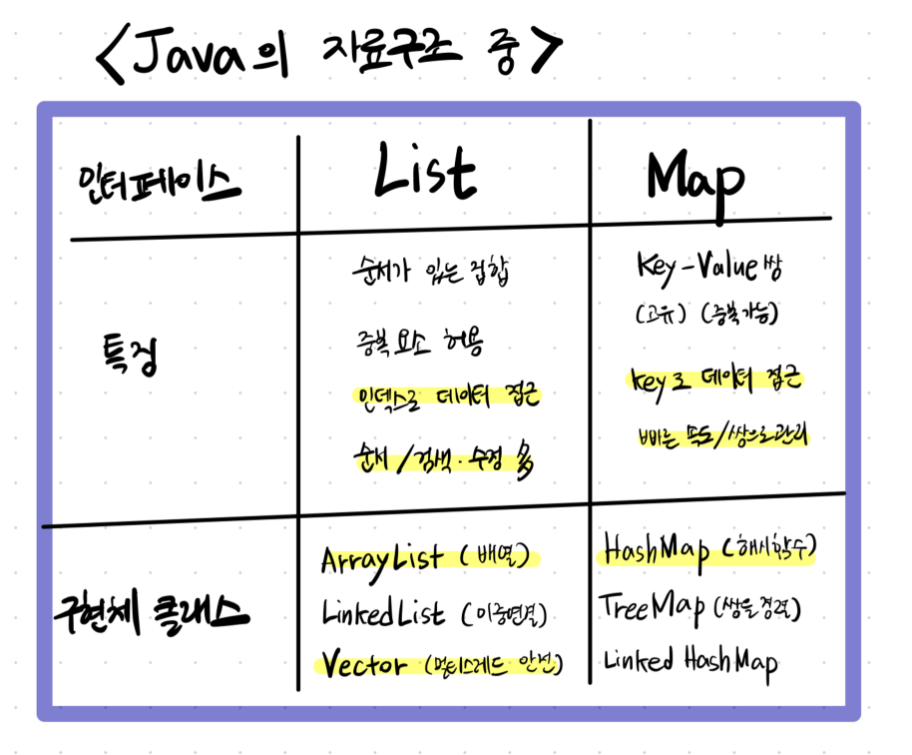 <Java의 자료구조 중>
인터페이스 List Map
특징
순서가 있는 집합
중복 요소 허용
인덱스로 데이터 접근
순서/검색·수정 多
Key-Value쌍
(고유) (중복가능)
key로 데이터 접근
빠른 속도/쌍으로관리
구현체 클래스
ArrayList (배열)
LinkedList (이중연결)
Vector (멀티스레드 안전)
HashMap (해시함수)
TreeMap (쌍을정렬)
Linked HashMap